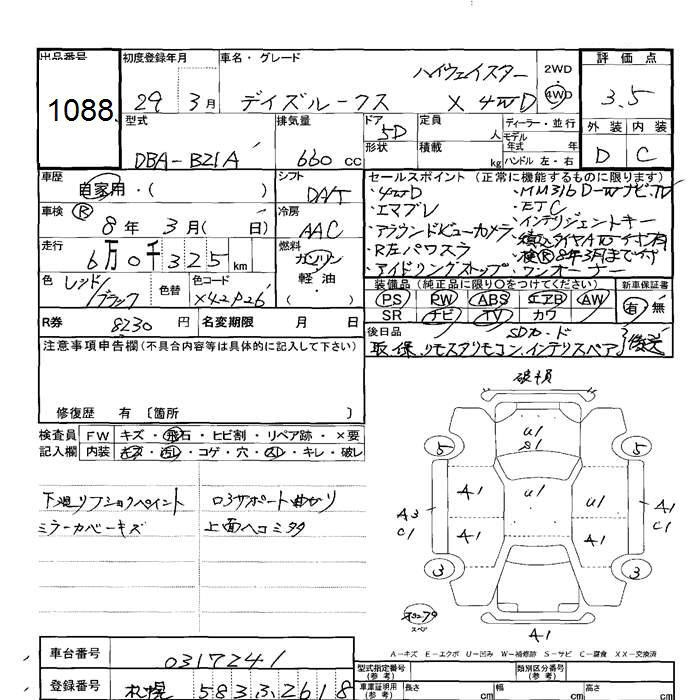 出品番号 初度登録年月 車名・グレード 評価点
1088
29 3月
ハイウェイスター
デイズルークス X 4WD
2WD
4WD
3.5
型式 排気量 ドア 定員 人 ディーラー・並行
5D
形状 積載 kg モデル年式 年
ハンドル 左・右
外装 内装
D C
DBA-B21A 660 cc
車歴 自家用・( )
シフト
DAT
車検 R 8年 3月( 日)
冷房
AAC
走行 6万0千325 km
燃料 ガソリン
軽・油
( )
色 レッド/ブラック 色替 色コード
セールスポイント (正常に機能するものに限ります)
・4WD
・エマブレ
・アラウンドビューカメラ
・R左パワスラ
・アイドリングストップ
・MM316D-Wナビ TV
・ETC
・インテリジェントキー
・ワンオーナー
装備品 (純正品に限り○をつけてください) 新車保証書
PS PW ABS エアB AW
SR ナビ TV カワ
有・無
R券 8230 円 名変期限 月 日
後日品 SDカード
取.保.リモスタリモコン.インテリスペア
後送
注意事項申告欄(不具合内容等は具体的に記入して下さい)
修復歴 有 〔箇所 〕
検査員記入欄 FW キズ・飛石・ヒビ割・リペア跡・×要
内装 キズ・汚レ・コゲ・穴・スレ・キレ・破レ
下廻リフショクペイント
ミラーカバーキズ
ロアサポート曲がり
上面ヘコミ多々
破損
U1
S1
5 5
A1 U1 U1 A1
A3 C1 A1 A1 C1
A1
3 3
スペア
A1
A-キズ E-エクボ U-凹み W-補修跡 S-サビ C-腐食 XX-交換済
車台番号 0317241
登録番号 札幌 583ふ2618
型式指定番号(参考) 類別区分番号(参考)
車庫証明用(参考) 長さ cm 幅 cm 高さ cm